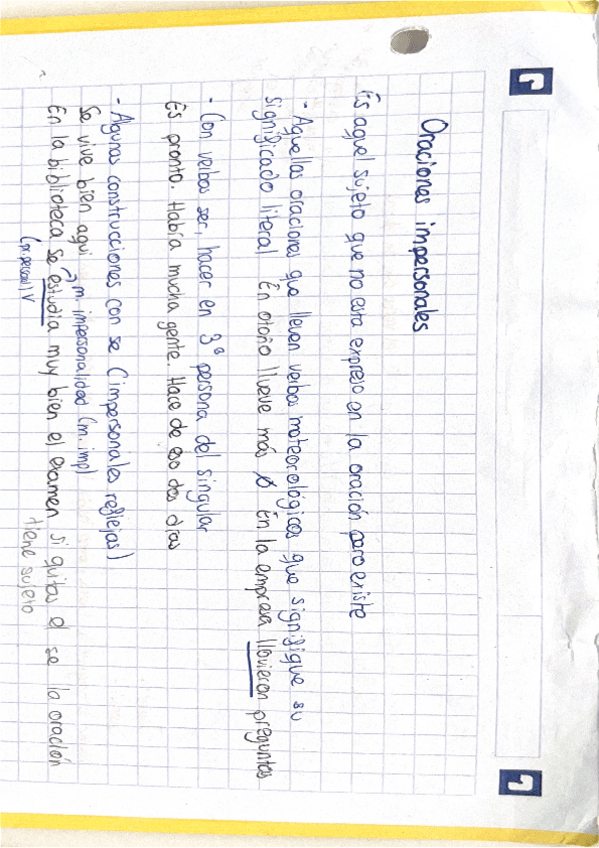 Oraciones impersonales
Es aquel sujeto que no esta expreso en la oración pero existe
- Aquellas oraciones que lleven verbos meteorológicos que signifique su
significado literal En otoño llueve más ø En la empresa llovieron preguntas
- Con verbos ser, hacer en 3ª persona del singular
Es pronto. Había mucha gente. Hace de eso dos días
- Algunas construcciones con se (impersonales reflejas)
Se vive bien aqui → m. impersonalidad (m. imp)
En la biblioteca se estudia muy bien el examen si quitas el se la oración
tiene sujeto